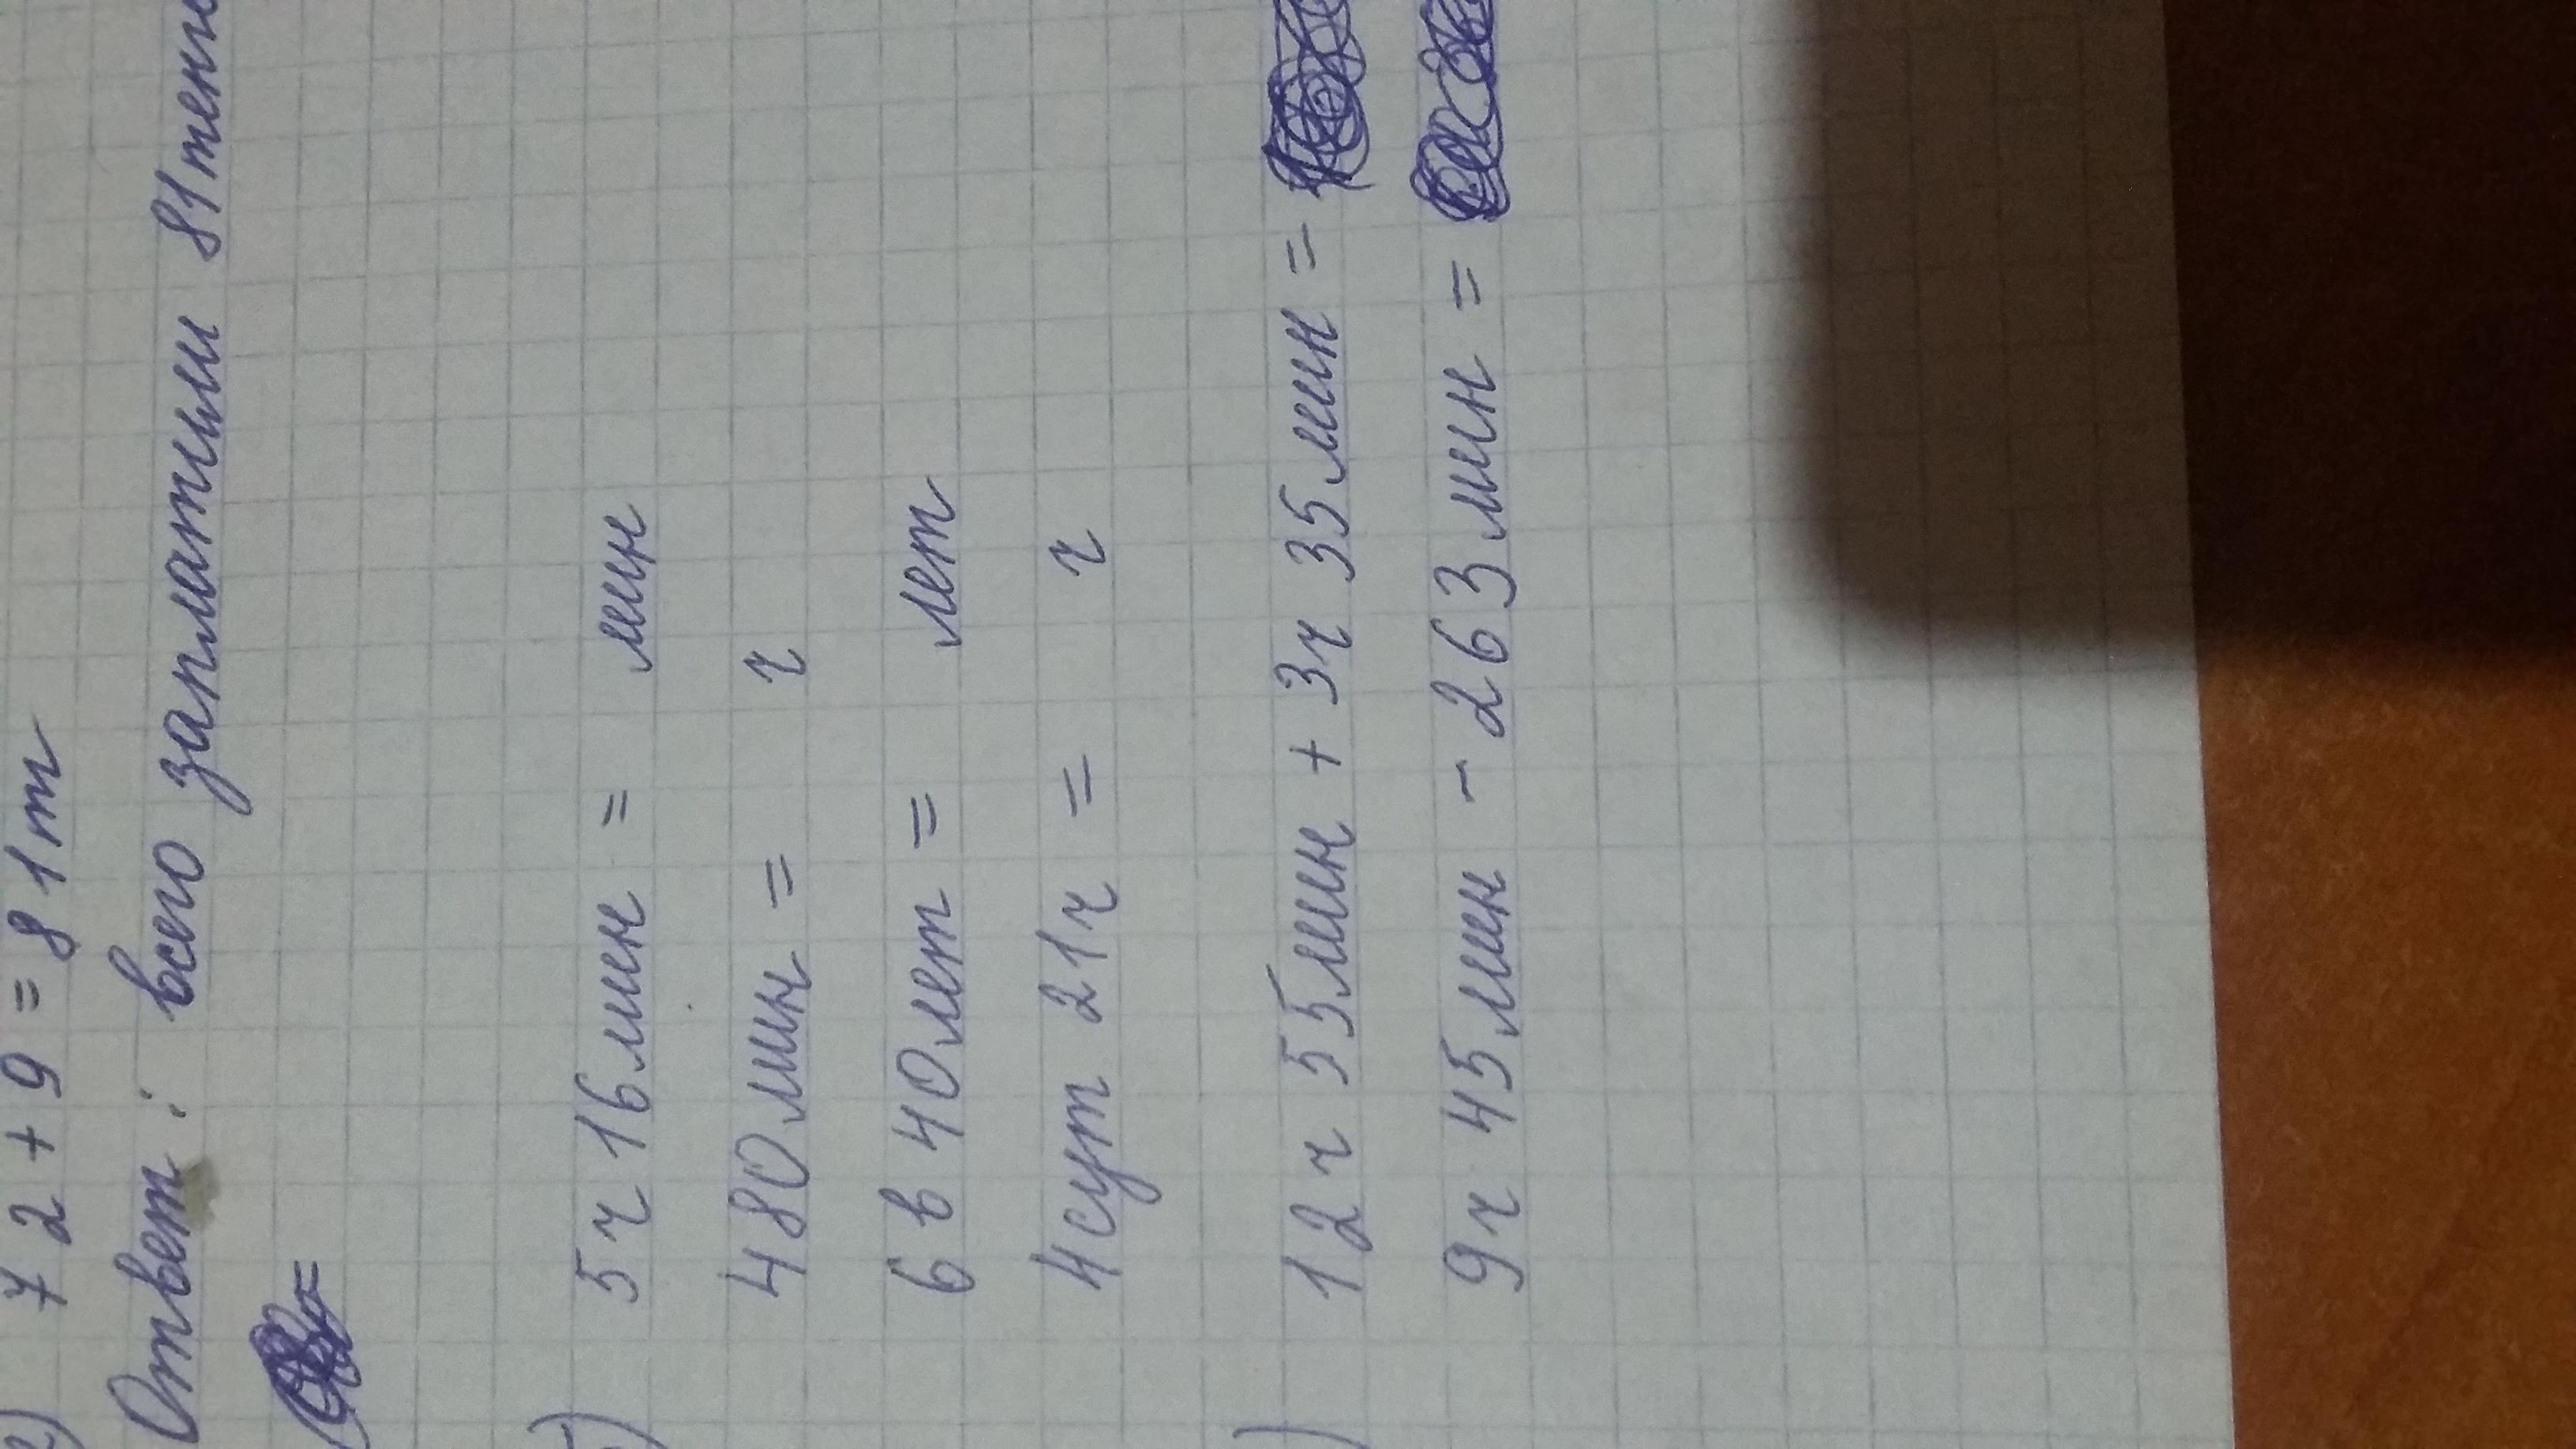 72+9=81т
Ответ: всего заплатили 81тенге
=
5ч 16мин = мин
480мин = ч
6 в 40лет = лет
4сут 21ч = ч
12ч 55мин + 3ч 35мин =
9ч 45мин - 263мин =